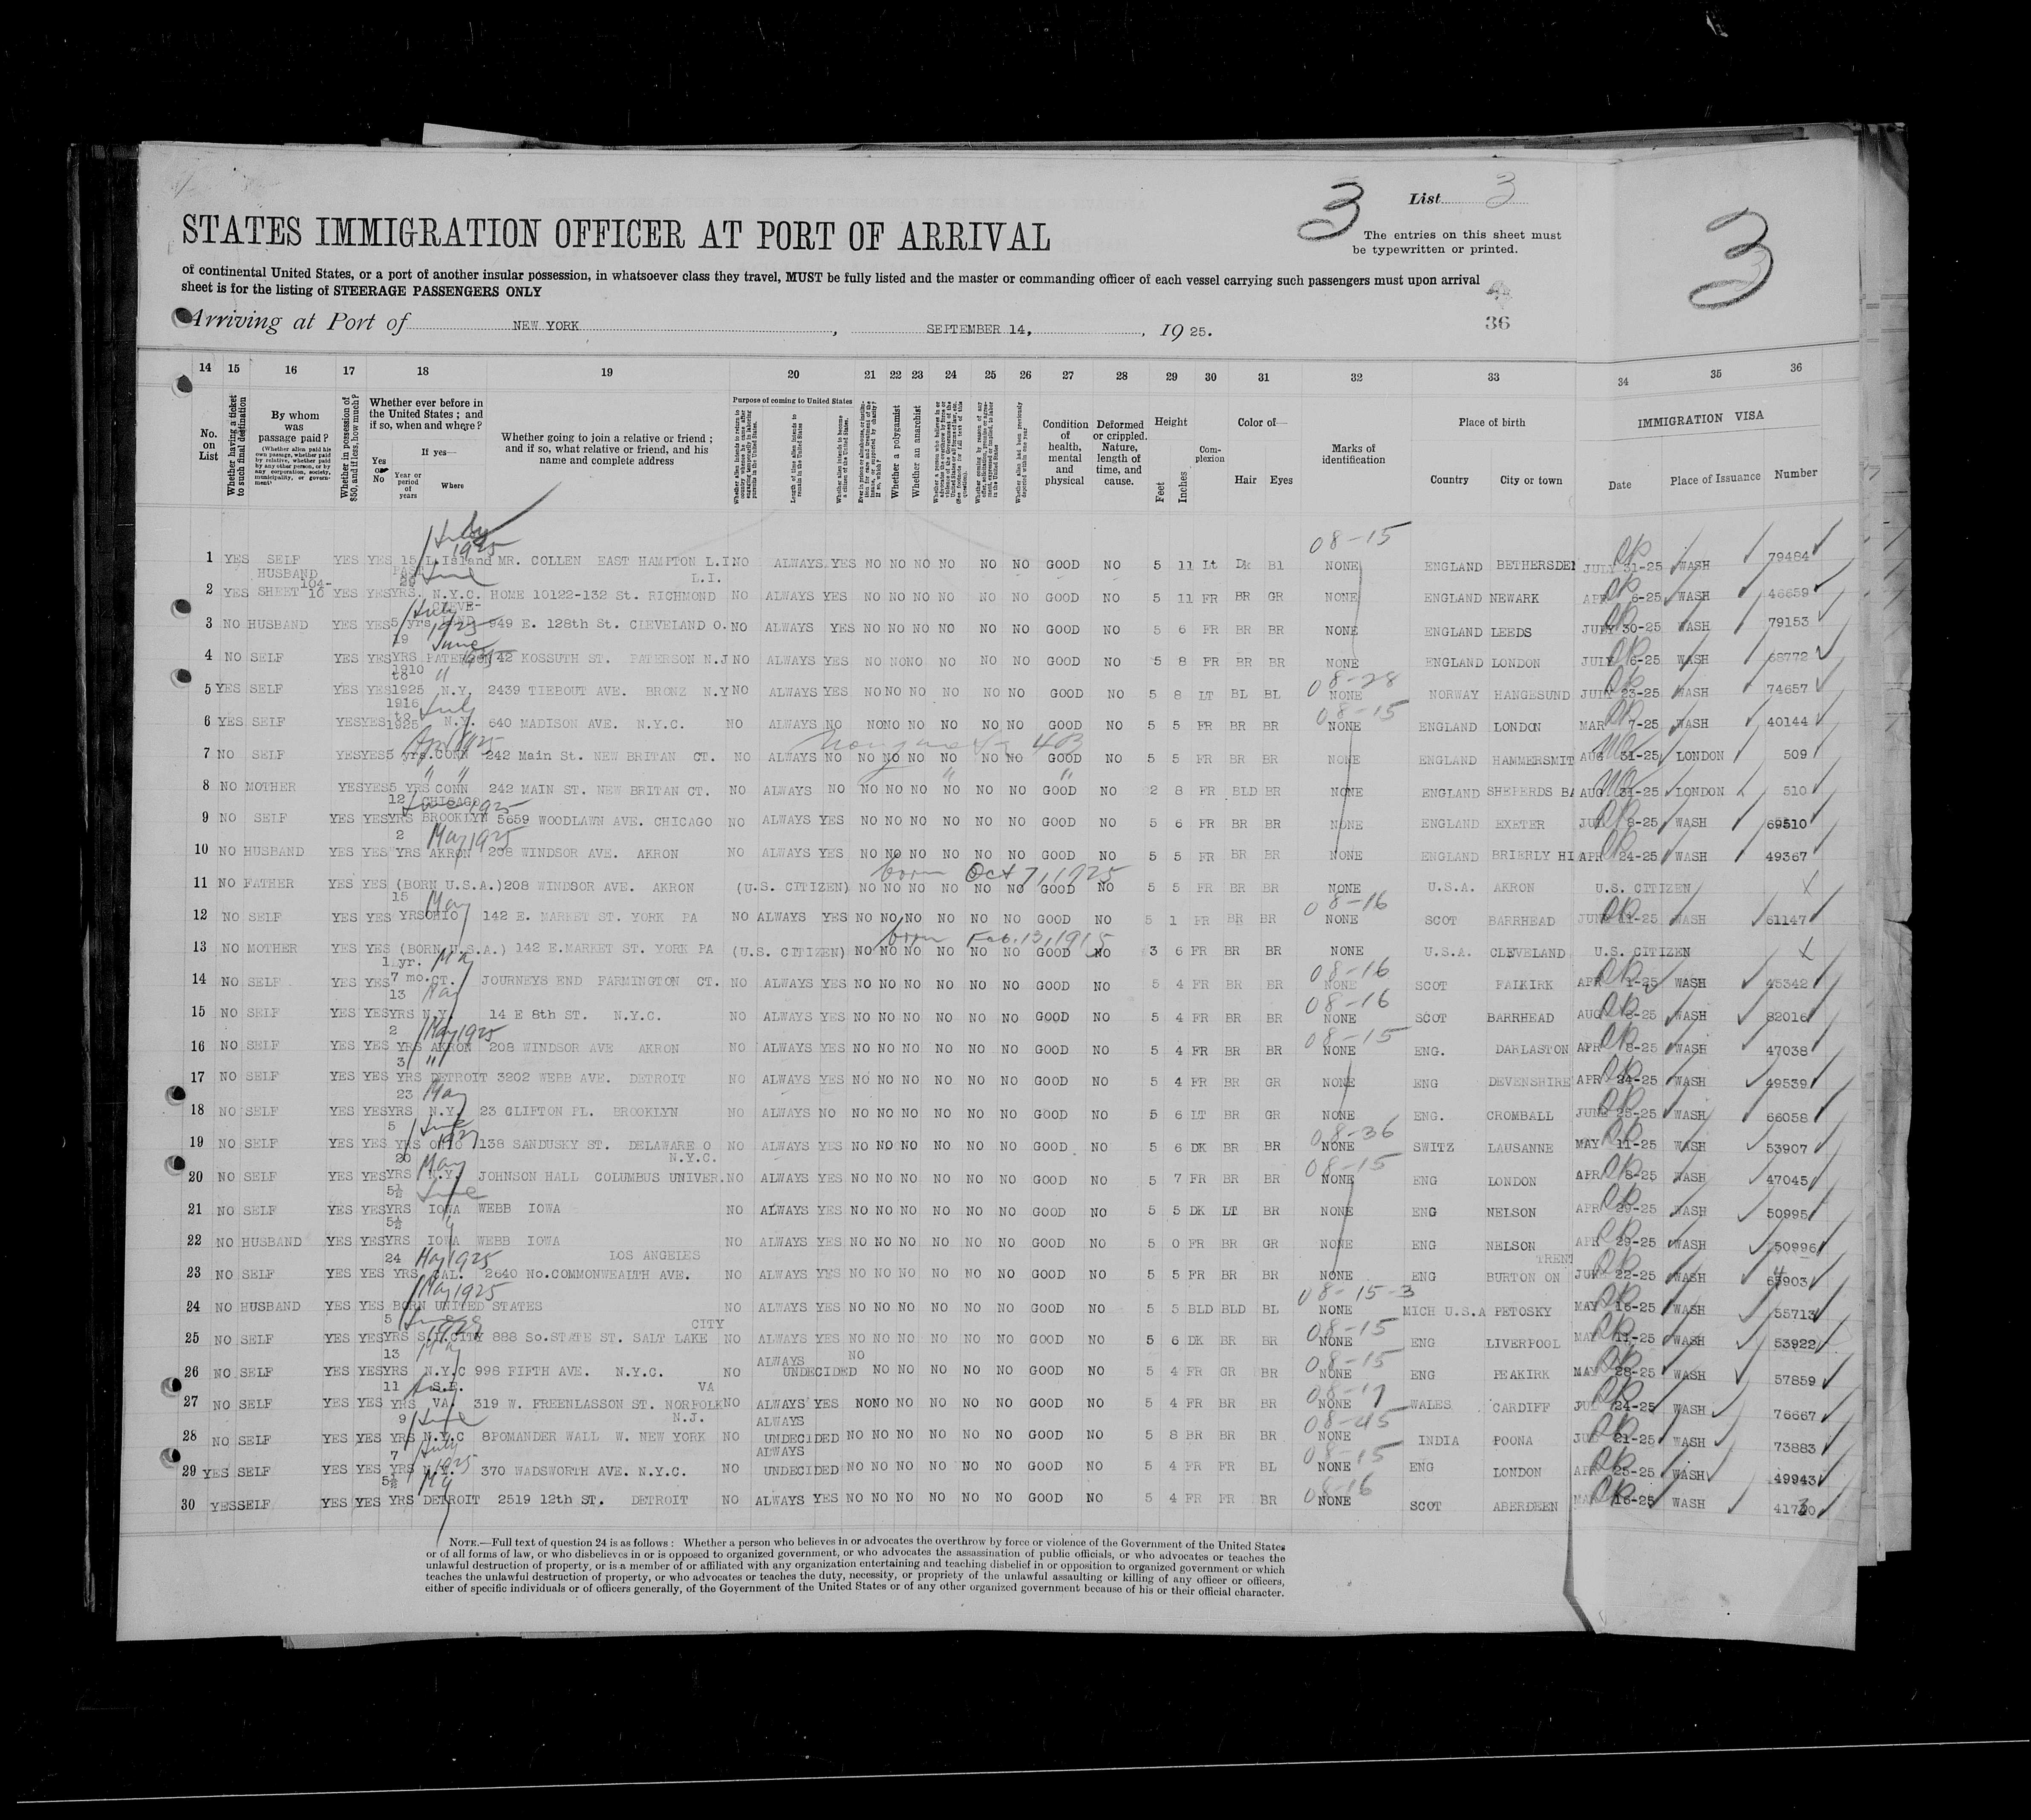 3
List 3
The entries on this sheet must
be typewritten or printed.
3
STATES IMMIGRATION OFFICER AT PORT OF ARRIVAL
of continental United States, or a port of another insular possession, in whatsoever class they travel, MUST be fully listed and the master or commanding officer of each vessel carrying such passengers must upon arrival
sheet is for the listing of STEERAGE PASSENGERS ONLY
36
Arriving at Port of NEW YORK, SEPTEMBER 14, 1925.
14 15 16 17 18 19 20 21 22 23 24 25 26 27 28 29 30 31 32 33 34 35 36
No. on List
Whether having a ticket to such final destination
By whom was passage paid?
(Whether alien paid his own passage, whether paid by relative, whether paid by any other person, or by any corporation, society, municipality, or government)
Whether in possession of $50, and if less, how much?
Whether ever before in the United States; and if so, when and where?
Yes or No
If yes—
Year or period of years
Where
Whether going to join a relative or friend; and if so, what relative or friend, and his name and complete address
Purpose of coming to United States
Length of time alien intends to remain in the United States
Whether alien intends to become a citizen of the United States.
Whether a polygamist
Whether an anarchist
Condition of health, mental and physical
Deformed or crippled. Nature, length of time, and cause.
Height
Feet Inches
Complexion
Color of—
Hair Eyes
Marks of identification
Place of birth
Country City or town
IMMIGRATION VISA
Date Place of Issuance Number
1 YES SELF YES YES 15 L.Island MR. COLLEN EAST HAMPTON L.I NO ALWAYS YES NO NO NO NO NO NO GOOD NO 5 11 Lt Dk Bl 08-15 NONE ENGLAND BETHERSDEN JULY 31-25 WASH 79484
2 YES HUSBAND SHEET 104-10 YES YES YRS. N.Y.C. HOME 10122-132 St. RICHMOND L.I. NO ALWAYS YES NO NO NO NO NO NO GOOD NO 5 11 FR BR GR NONE ENGLAND NEWARK APR 6-25 WASH 46659
3 NO HUSBAND YES YES 5 yrs CLEVELAND 949 E. 128th St. CLEVELAND O. NO ALWAYS YES NO NO NO NO NO NO GOOD NO 5 6 FR BR BR NONE ENGLAND LEEDS JULY 30-25 WASH 79153
4 NO SELF YES YES 19 YRS PATERSON 42 KOSSUTH ST. PATERSON N.J NO ALWAYS YES NO NO NO NO NO NO GOOD NO 5 8 FR BR BR NONE ENGLAND LONDON JULY 6-25 WASH 68772
5 YES SELF YES YES 1910 to 1925 N.Y. 2439 TIEBOUT AVE. BRONZ N.Y NO ALWAYS YES NO NO NO NO NO NO GOOD NO 5 8 LT BL BL 08-28 NONE NORWAY HANGESUND JULY 23-25 WASH 74657
6 YES SELF YES YES 1916 to 1925 July N.Y. 640 MADISON AVE. N.Y.C. NO ALWAYS NO NO NO NO NO NO NO GOOD NO 5 5 FR BR BR 08-15 NONE ENGLAND LONDON MAR 7-25 WASH 40144
7 NO SELF YES YES 5 yrs. CONN 242 Main St. NEW BRITAN CT. NO ALWAYS NO NO NO NO NO NO NO GOOD NO 5 5 FR BR BR NONE ENGLAND HAMMERSMIT AUG 31-25 LONDON 509
8 NO MOTHER YES YES 5 YRS CONN 242 MAIN ST. NEW BRITAN CT. NO ALWAYS NO NO NO NO NO NO NO GOOD NO 2 8 FR BLD BR NONE ENGLAND SHEPERDS BA AUG 31-25 LONDON 510
9 NO SELF YES YES 12 YRS CHICAGO BROOKLYN June 1925 5659 WOODLAWN AVE. CHICAGO NO ALWAYS YES NO NO NO NO NO NO GOOD NO 5 6 FR BR BR NONE ENGLAND EXETER JUL 8-25 WASH 69510
10 NO HUSBAND YES YES 2 YRS AKRON May 1925 208 WINDSOR AVE. AKRON NO ALWAYS YES NO NO NO NO NO NO GOOD NO 5 5 FR BR BR NONE ENGLAND BRIERLY HI APR 24-25 WASH 49367
born Oct 7, 1925
11 NO FATHER YES YES (BORN U.S.A.) 208 WINDSOR AVE. AKRON (U.S. CITIZEN) NO NO NO NO NO NO GOOD NO 5 5 FR BR BR NONE U.S.A. AKRON U.S. CITIZEN X
12 NO SELF YES YES 15 YRS OHIO May 142 E. MARKET ST. YORK PA NO ALWAYS YES NO NO NO NO NO NO GOOD NO 5 1 FR BR BR 08-16 NONE SCOT BARRHEAD JUNE 11-25 WASH 61147
born Feb. 13, 1915
13 NO MOTHER YES YES (BORN U.S.A.) 142 E.MARKET ST. YORK PA (U.S. CITIZEN) NO NO NO NO NO NO GOOD NO 3 6 FR BR BR NONE U.S.A. CLEVELAND U.S. CITIZEN X
14 NO SELF YES YES 1 yr. 7 mo. CT. May JOURNEYS END FARMINGTON CT. NO ALWAYS YES NO NO NO NO NO NO GOOD NO 5 4 FR BR BR 08-16 NONE SCOT FALKIRK APR 1-25 WASH 45342
15 NO SELF YES YES 13 YRS N.Y. May 14 E 8th ST. N.Y.C. NO ALWAYS YES NO NO NO NO NO NO GOOD NO 5 4 FR BR BR 08-16 NONE SCOT BARRHEAD AUG 8-25 WASH 82016
16 NO SELF YES YES 2 YRS AKRON May 1925 208 WINDSOR AVE AKRON NO ALWAYS YES NO NO NO NO NO NO GOOD NO 5 4 FR BR BR 08-15 NONE ENG. DARLASTON APR 8-25 WASH 47038
17 NO SELF YES YES 3 YRS DETROIT " 3202 WEBB AVE. DETROIT NO ALWAYS YES NO NO NO NO NO NO GOOD NO 5 4 FR BR GR NONE ENG DEVENSHIRE APR 24-25 WASH 49539
18 NO SELF YES YES 23 YRS N.Y. May 23 CLIFTON PL. BROOKLYN NO ALWAYS NO NO NO NO NO NO NO GOOD NO 5 6 LT BR GR NONE ENG. CROMBALL JUNE 25-25 WASH 66058
19 NO SELF YES YES 5 YRS OHIO June 138 SANDUSKY ST. DELAWARE O NO ALWAYS YES NO NO NO NO NO NO GOOD NO 5 6 DK BR BR 08-36 NONE SWITZ LAUSANNE MAY 11-25 WASH 53907
20 NO SELF YES YES 20 YRS N.Y. May JOHNSON HALL COLUMBUS UNIVER. N.Y.C. NO ALWAYS YES NO NO NO NO NO NO GOOD NO 5 7 FR BR BR 08-15 NONE ENG LONDON APR 8-25 WASH 47045
21 NO SELF YES YES 5½ YRS IOWA June WEBB IOWA NO ALWAYS YES NO NO NO NO NO NO GOOD NO 5 5 DK LT BR NONE ENG NELSON APR 29-25 WASH 50995
22 NO HUSBAND YES YES 5½ YRS IOWA WEBB IOWA NO ALWAYS YES NO NO NO NO NO NO GOOD NO 5 0 FR BR GR NONE ENG NELSON APR 29-25 WASH 50996
23 NO SELF YES YES 24 YRS CAL. May 1925 2640 No.COMMONWEALTH AVE. LOS ANGELES NO ALWAYS YES NO NO NO NO NO NO GOOD NO 5 5 FR BR BR NONE ENG BURTON ON TRENT JUNE 22-25 WASH
24 NO HUSBAND YES YES BORN UNITED STATES May 1925 NO ALWAYS YES NO NO NO NO NO NO GOOD NO 5 5 BLD BLD BL 08-15-3 NONE MICH U.S.A PETOSKY MAY 16-25 WASH 55713
25 NO SELF YES YES 5 YRS S.L.CITY 888 So.STATE ST. SALT LAKE CITY NO ALWAYS YES NO NO NO NO NO NO GOOD NO 5 6 DK BR BR 08-15 NONE ENG LIVERPOOL MAY 11-25 WASH 53922
26 NO SELF YES YES 13 YRS N.Y.C May 998 FIFTH AVE. N.Y.C. NO ALWAYS UNDECIDED NO NO NO NO NO NO GOOD NO 5 4 FR GR BR 08-15 NONE ENG PEAKIRK MAY 28-25 WASH 57859
27 NO SELF YES YES 11 YRS VA. 319 W. FREENLASSON ST. NORFOLK VA NO ALWAYS YES NO NO NO NO NO NO GOOD NO 5 4 FR BR BR 08-17 NONE WALES CARDIFF JUL 24-25 WASH 76667
28 NO SELF YES YES 9 YRS N.Y.C June 8POMANDER WALL W. NEW YORK N.J. NO ALWAYS UNDECIDED NO NO NO NO NO NO GOOD NO 5 8 BR BR BR 08-45 NONE INDIA POONA JUL 21-25 WASH 73883
29 YES SELF YES YES 7 YRS N.Y. July 1925 370 WADSWORTH AVE. N.Y.C. NO ALWAYS UNDECIDED NO NO NO NO NO NO GOOD NO 5 4 FR FR BL 08-15 NONE ENG LONDON APR 25-25 WASH 49943
30 YES SELF YES YES 5½ YRS DETROIT 2519 12th ST. DETROIT NO ALWAYS YES NO NO NO NO NO NO GOOD NO 5 4 FR FR BR 08-16 NONE SCOT ABERDEEN MAR 16-25 WASH
NOTE.—Full text of question 24 is as follows: Whether a person who believes in or advocates the overthrow by force or violence of the Government of the United States
or of all forms of law, or who disbelieves in or is opposed to organized government, or who advocates the assassination of public officials, or who advocates or teaches the
unlawful destruction of property, or is a member of or affiliated with any organization entertaining and teaching disbelief in or opposition to organized government or which
teaches the unlawful destruction of property, or who advocates or teaches the duty, necessity, or propriety of the unlawful assaulting or killing of any officer or officers,
either of specific individuals or of officers generally, of the Government of the United States or of any other organized government because of his or their official character.